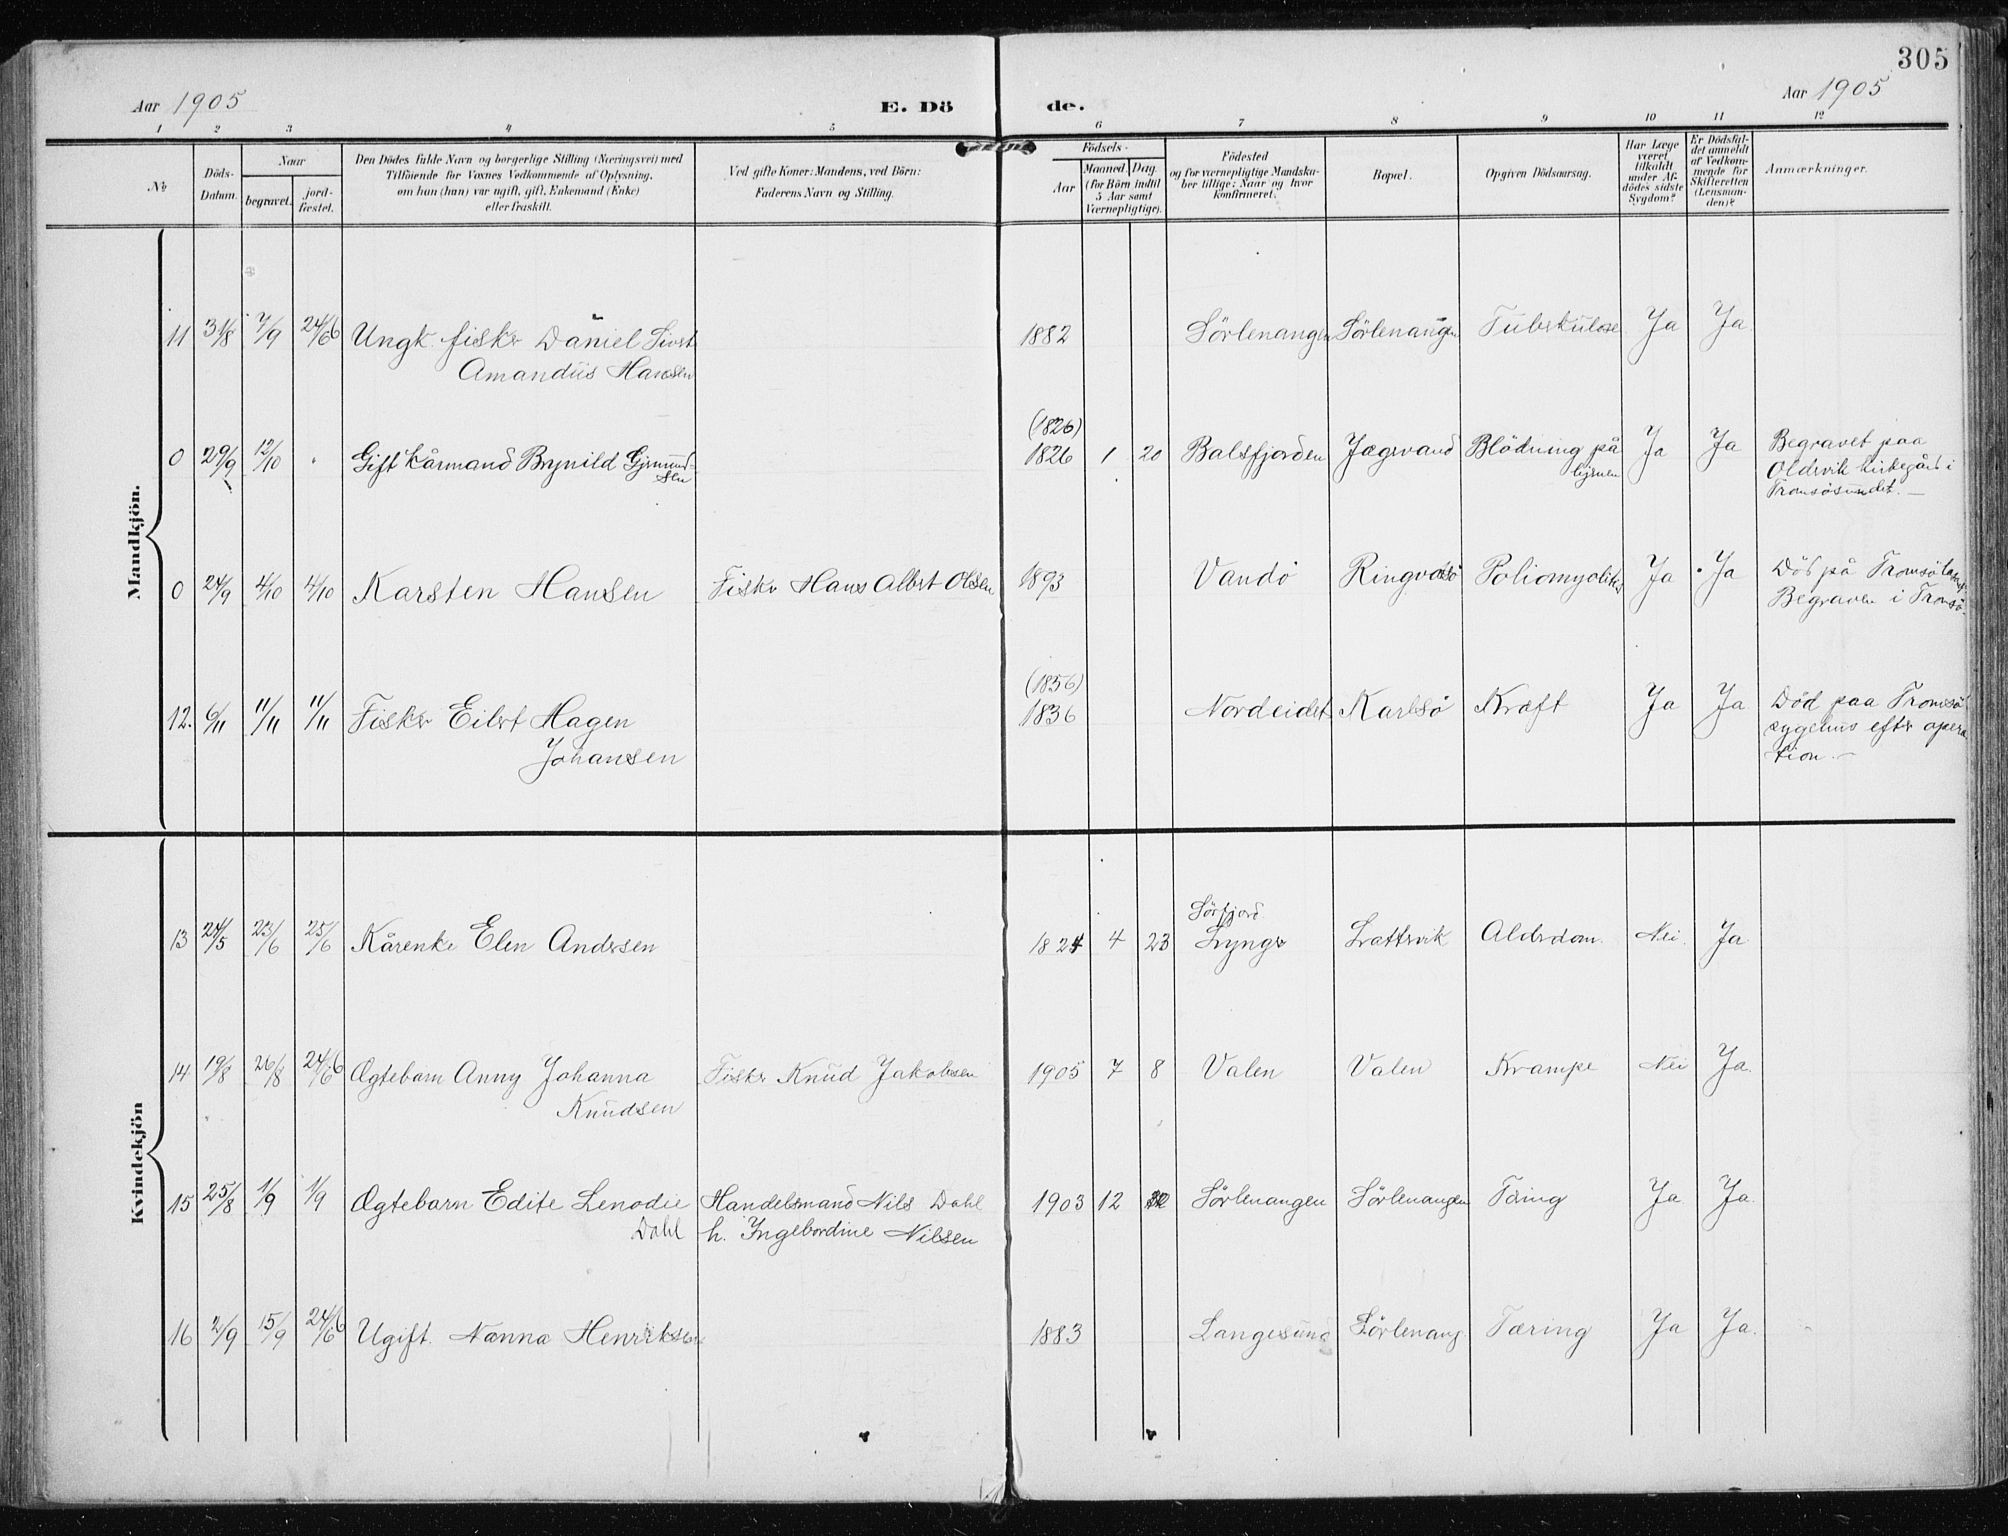 305
Aar 1905
E. Dö
de.
Aar 1905
1 2 3 4 5 6 7 8 9 10 11 12
No
Döds-
Datum.
Naar
begravet.
jord-
fæstet.
Den Dödes fulde Navn og borgerlige Stilling (Næringsvei) med
Tilföiende for Voxnes Vedkommende af Oplysning,
om han (hun) var ugift, gift, Enkemand (Enke)
eller fraskilt.
Ved gifte Koner: Mandens, ved Börn:
Faderens Navn og Stilling.
Födsels-
Aar
Maaned. Dag.
(for Börn indtil
5 Aar samt
Værnepligtige).
Födested
og for værnepligtige Mandska-
ber tillige: Naar og hvor
konfirmeret.
Bopæl.
Opgiven Dödsaarsag.
Har Læge
været
tilkaldt
under Af-
dödes sidste
Sygdom?
Er Dödsfal-
det anmeldt
af Vedkom-
mende for
Skifteretten
(Lensman-
den)?
Anmærkninger.
Mandkjön.
11 31/8 7/9 24/6 06 Ungk. fisker Daniel Sivert 1882 Sörlenangen Sörlenangen Tuberkulose Ja Ja.
Amandus Hansen
(1826)
0 29/9 12/10 Gift kårmand Brynild Gjermund- 1826 1 20 Balsfjorden Jægervand Blödning på Ja Ja Begravet paa
sen hjernen Oldervik kirkegård i
Tromsösundet. —
0 24/9 4/10 4/10 Karsten Hansen Fisker Hans Albert Olsen 1893 Vandö Ringvasö Poliomyelitis Ja Ja Död på Tromsö
Begraven i Tromsö.
(1856)
12. 6/11 11/11 11/11 Fisker Eilert Hagen 1836 Nordeidet Karlsö Kræft Ja Ja Död paa Tromsö
Johansen sygehus efter opera
tion. —
Kvindekjön
Sörfjord
13 24/5 23/6 25/6 Kårenke Elen Andersen 1824 4 23 Lyngen Lattervik Alderdom. Nei. Ja
14 19/8 26/8 24/6 06 Ægtebarn Anny Johanna Fisker Knud Jakobsen 1905 7 8 Valen Valen Krampe Nei Ja.
Knudsen
15 25/8 1/9 1/9 Ægtebarn Edite Lenodie Handelsmand Nils Dahl 1903 12 Sörlenangen Sörlenangen Tæring Ja Ja.
Dahl h. Ingebordine Nilsen
16 2/9 15/9 24/6 06 Ugift. Nanna Henriksen 1883 Langesund Sörlenang. Tæring Ja Ja.